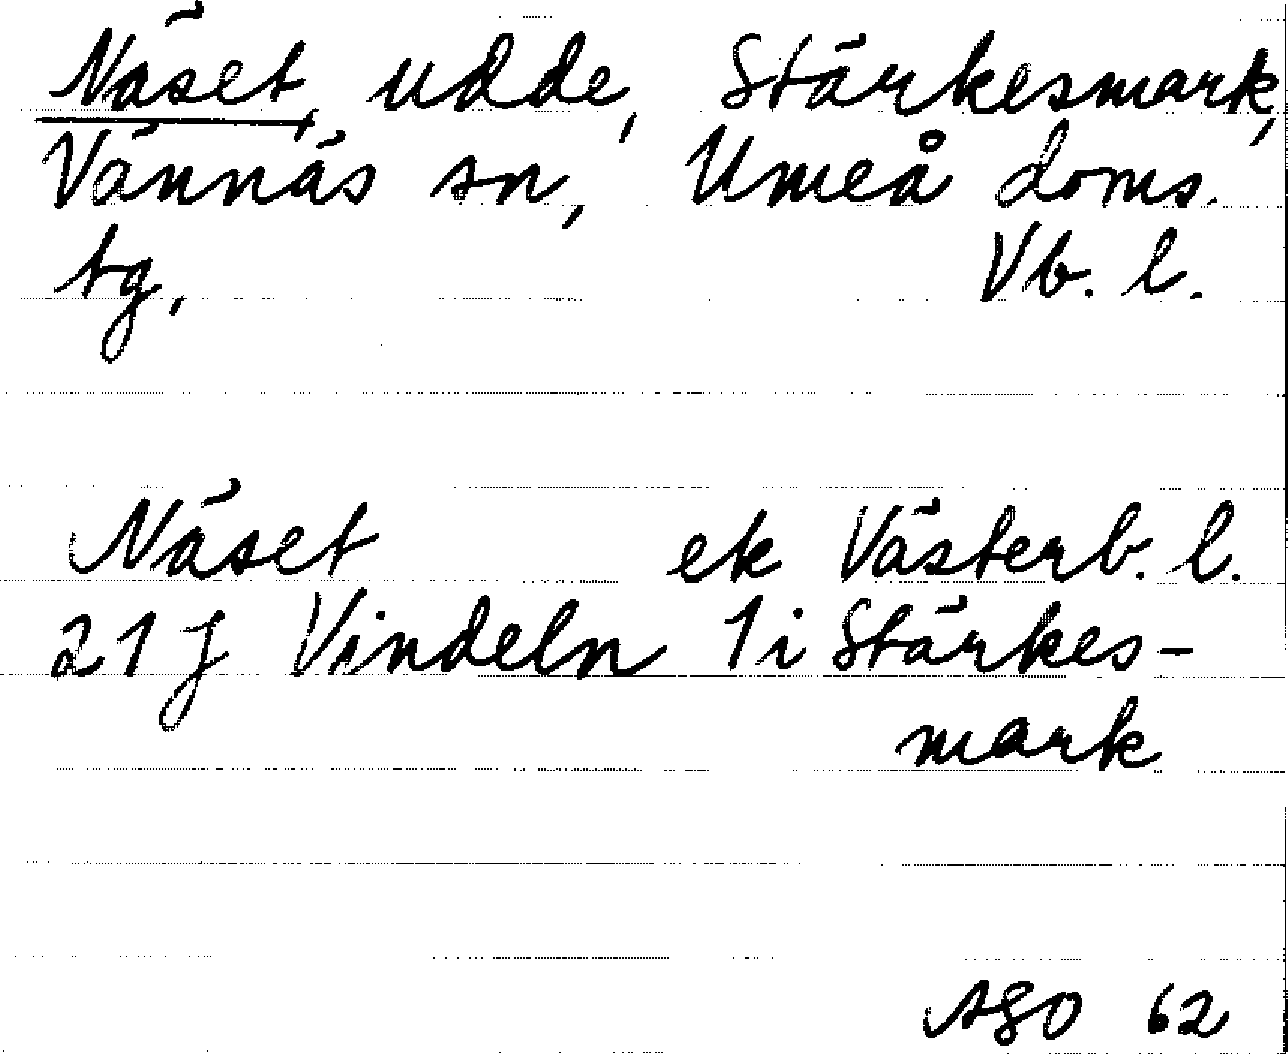 Näset, udde, Stärkesmark,
Vännäs sn, Umeå doms.
tg, Vb. l.
Näset ek Västerb. l.
21 J Vindeln 1 i Stärkes-
mark
ASO 62